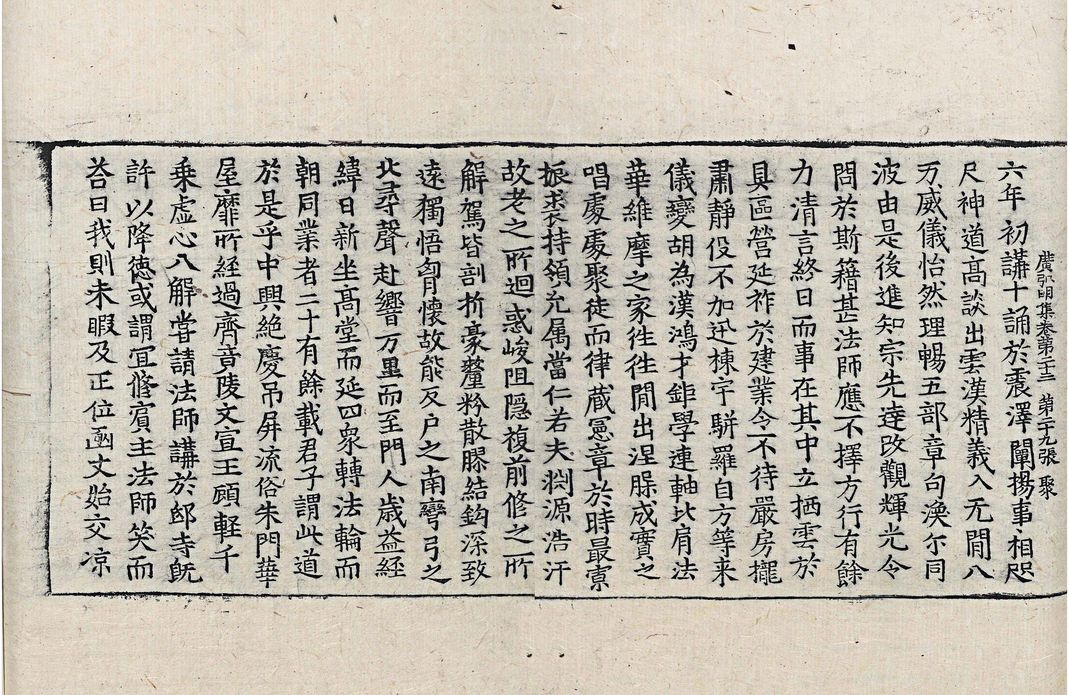 廣弘明集卷第二十三 第二十九張 聚
六年初講十誦於震澤闡揚事相咫
尺神道髙談出雲漢精義入无間八
万威儀怡然理暢五部章句渙尒同
波由是後進知宗先達改觀輝光令
問於斯籍甚法師應不擇方行有餘
力清言終日而事在其中立栖雲於
具區營延祚於建業令不待嚴房櫳
肅静役不加迅棟宇駢羅自方等来
儀變胡為漢鴻才鉅學連軸比肩法
華維摩之家徃徃間出涅槃成實之
唱處處聚徒而律藏憲章於時最寡
振裘持領允属當仁若夫渊源浩汗
故老之所迴惑峻阻隱複前修之所
解駕皆剖折豪釐粉散膠結鉤深致
遠獨悟匈懷故能反戶之南彎弓之
北尋聲赴響万里而至門人歲益經
緯日新坐髙堂而延四衆轉法輪而
朝同業者二十有餘載君子謂此道
於是乎中興絶慶吊屏流俗朱門華
屋靡所經過齊竟陵文宣王顧軽千
乗虛心八解甞請法師講於邸寺旣
許以降德或謂宜修賓主法師笑而
荅曰我則未暇及正位函文始交凉